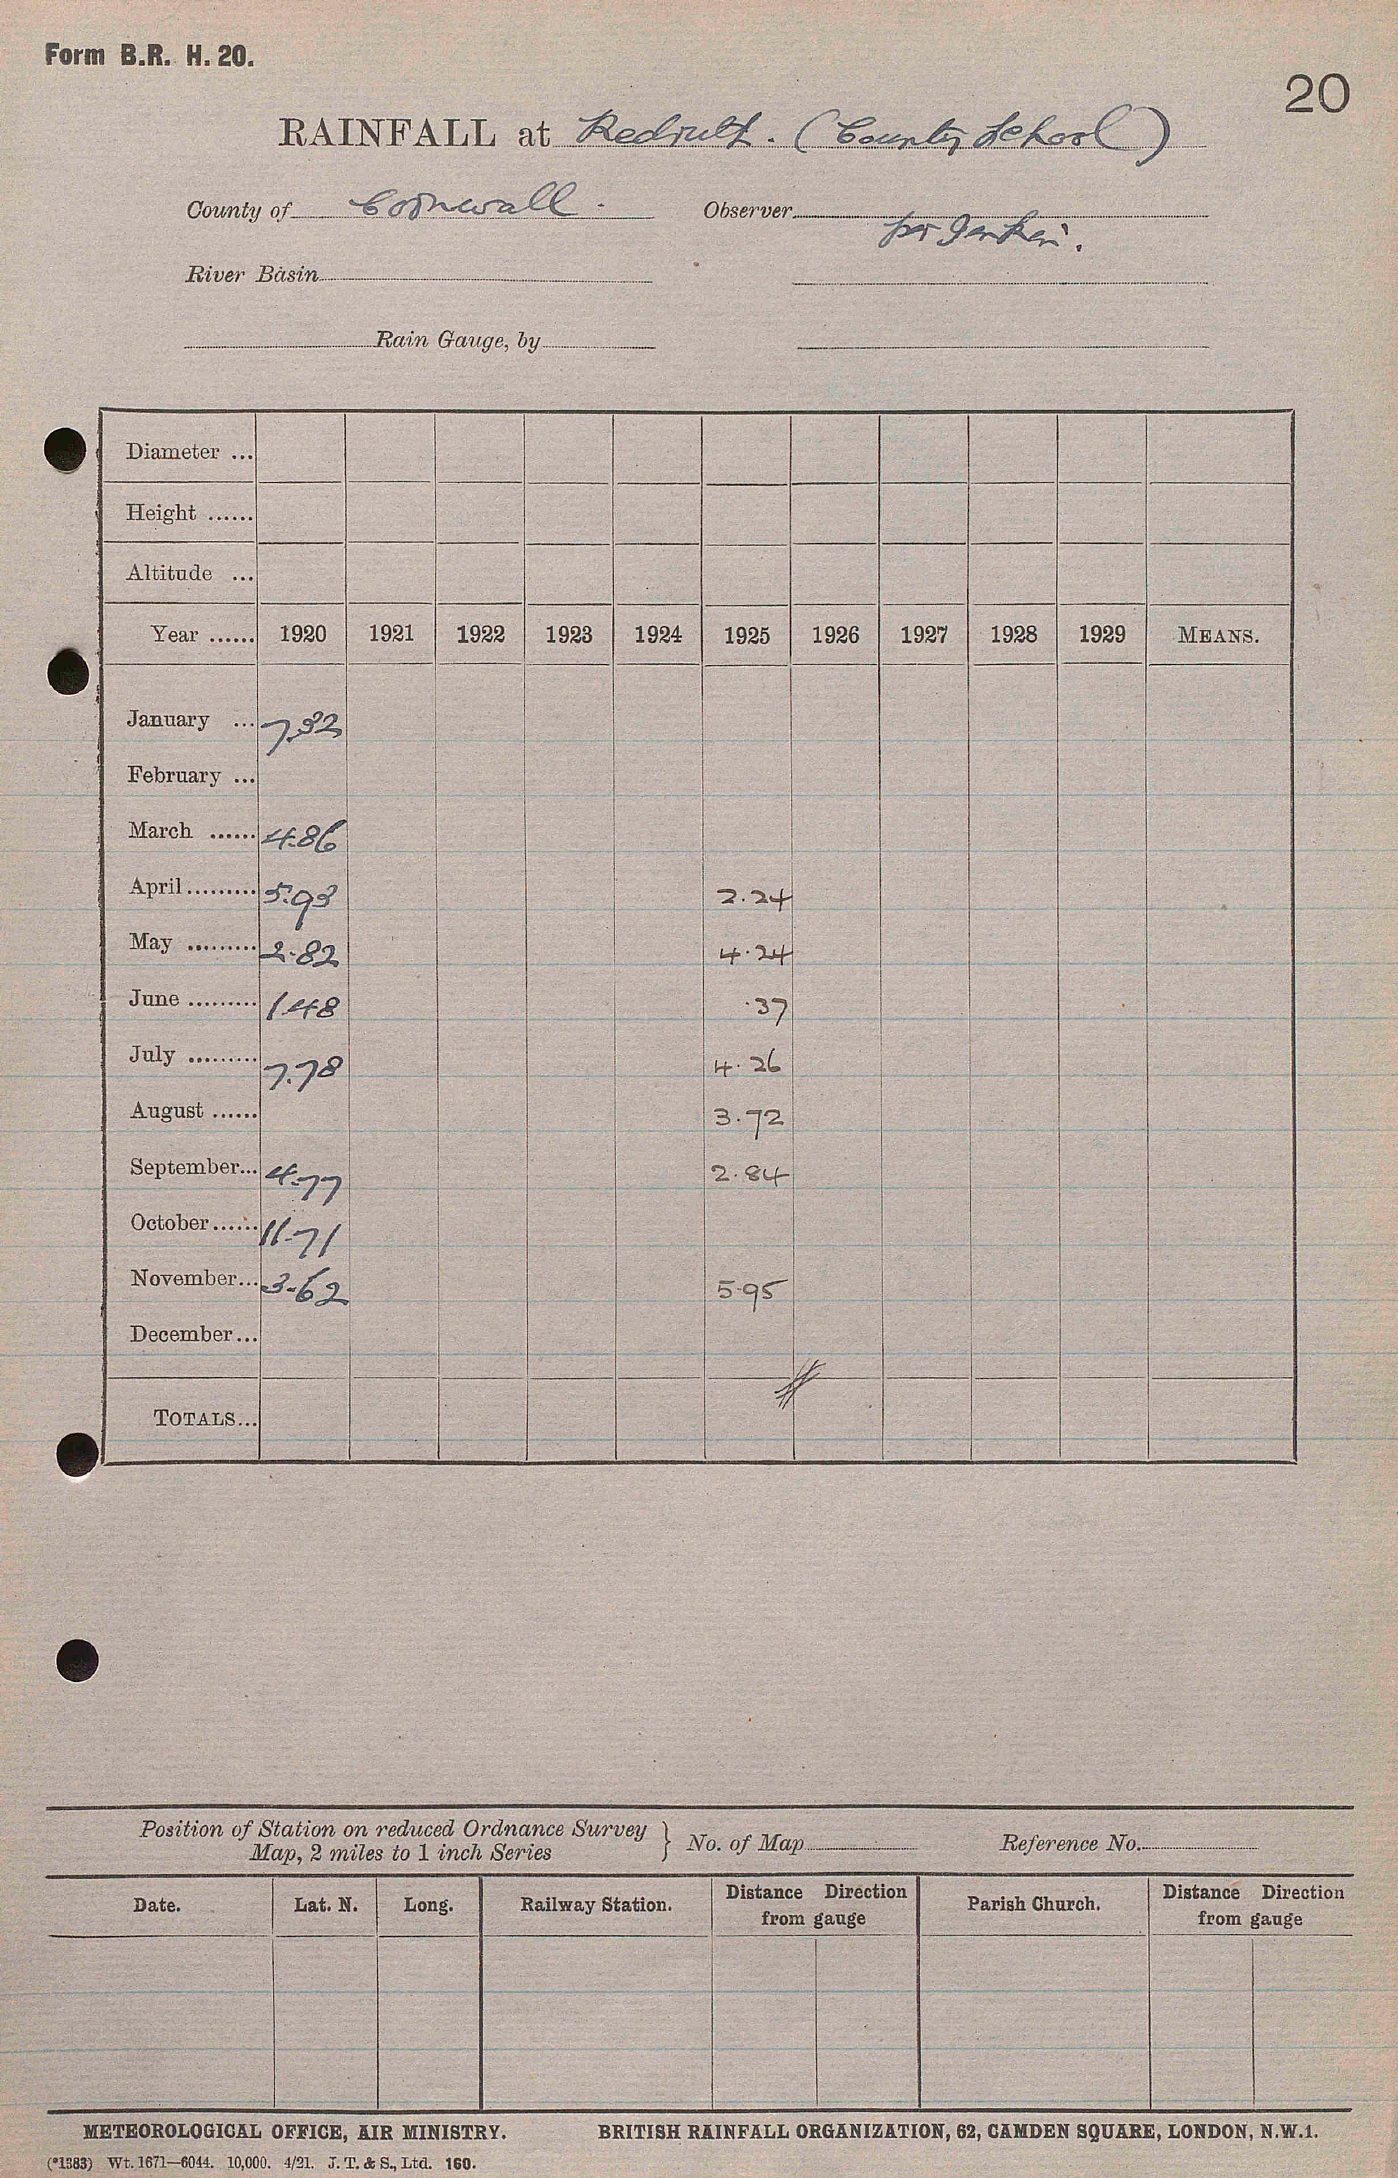 Form B.R. H. 20.
20
RAINFALL at Redruth. (County School)
County of Cornwall. Observer
per Jenkin.
River Basin
Rain Gauge, by
Diameter ...
Height ......
Altitude ...
Year ...... 1920 1921 1922 1923 1924 1925 1926 1927 1928 1929 MEANS.
January ... 7.32
February ...
March ...... 4.86
April ......... 5.93 2.24
May ......... 2.82 4.24
June ......... 1.48 .37
July ......... 7.78 4.26
August ...... 3.72
September... 4.77 2.84
October...... 11.71
November... 3.62 5.95
December...
TOTALS...
Position of Station on reduced Ordnance Survey
Map, 2 miles to 1 inch Series } No. of Map Reference No.
Date. Lat. N. Long. Railway Station. Distance Direction from gauge Parish Church. Distance Direction from gauge
METEOROLOGICAL OFFICE, AIR MINISTRY. BRITISH RAINFALL ORGANIZATION, 62, CAMDEN SQUARE, LONDON, N.W.1.
(*1383) Wt. 1671—6044. 10,000. 4/21. J. T. & S., Ltd. 160.